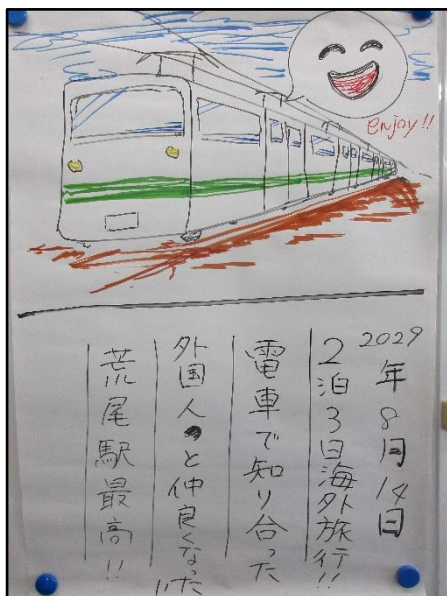 enjoy!!
2029年8月14日
2泊3日海外旅行!!
電車で知り合った
外国人と仲良くなった!!
荒尾駅最高!!